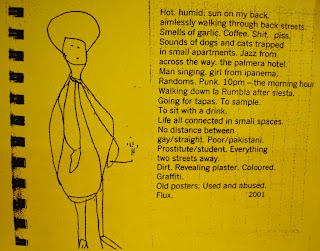 Hot. humid. sun on my back,
aimlessly walking through back streets.
Smells of garlic. Coffee. Shit. piss.
Sounds of dogs and cats trapped
in small apartments. Jazz from
across the way. the palmera hotel.
Man singing. girl from ipanema.
Randoms. Punk. 10pm – the morning hour
Walking down la Rumbla after siesta.
Going for tapas. To sample.
To sit with a drink.
Life all connected in small spaces.
No distance between
gay/straight. Poor/pakistani.
Prostitute/student. Everything
two streets away.
Dirt. Revealing plaster. Coloured.
Graffiti.
Old posters. Used and abused.
Flux. 2001